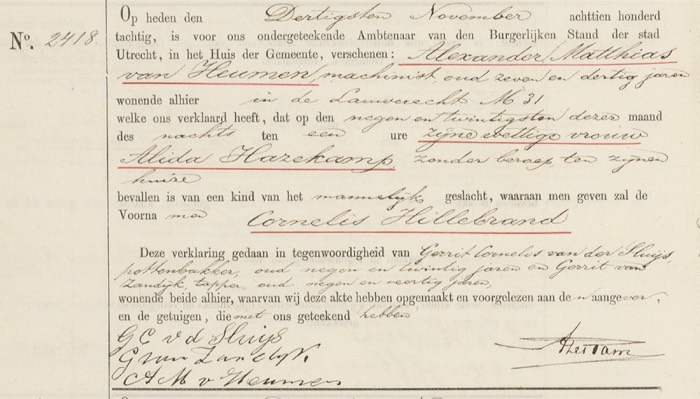 Nº. 2418.
Op heden den Dertigsten November achttien honderd
tachtig, is voor ons ondergeteekende Ambtenaar van den Burgerlijken Stand der stad
Utrecht, in het Huis der Gemeente, verschenen: Alexander Matthias
van Heumen, machinist, oud zeven en dertig jaren
wonende alhier in de Lauwerecht M 31
welke ons verklaard heeft, dat op den negen en twintigsten dezer maand
des nachts ten een ure zijne wettige vrouw
Alida Hazekamp, zonder beroep ten zijnen
huize
bevallen is van een kind van het mannelijk geslacht, waaraan men geven zal de
Voorna men Cornelis Hillebrand
Deze verklaring gedaan in tegenwoordigheid van Gerrit Cornelis van der Sluijs,
pottenbakker, oud negen en twintig jaren en Gerrit van
Zandijk, tapper, oud negen en veertig jaren,
wonende beide alhier, waarvan wij deze akte hebben opgemaakt en voorgelezen aan de n aangever,
en de getuigen, die met ons geteekend hebben
G C v d Sluijs
G van Zandijk.
A M v Heumen